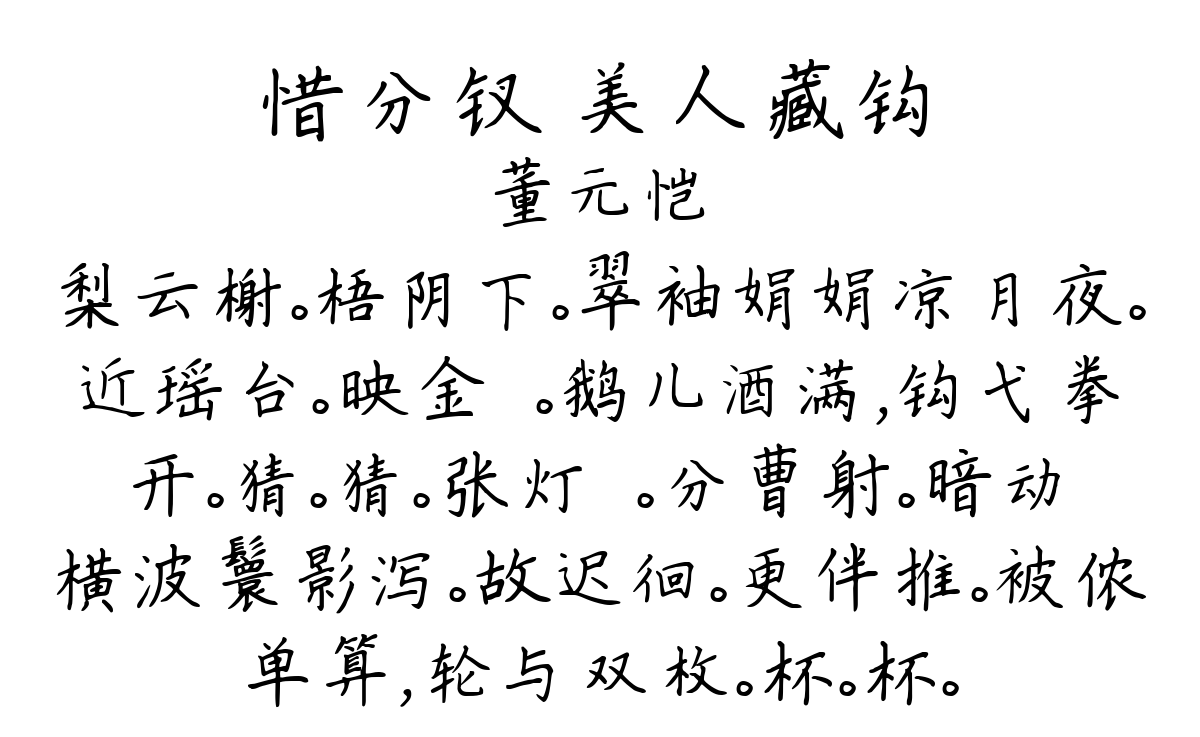 惜分钗 美人藏钩
董元恺
梨云榭。梧阴下。翠袖娟娟凉月夜。
近瑶台。映金 。鹅儿酒满,钩弋拳
开。猜。猜。张灯 。分曹射。暗动
横波鬟影泻。故迟徊。更伴推。被侬
单算,轮与双枚。杯。杯。